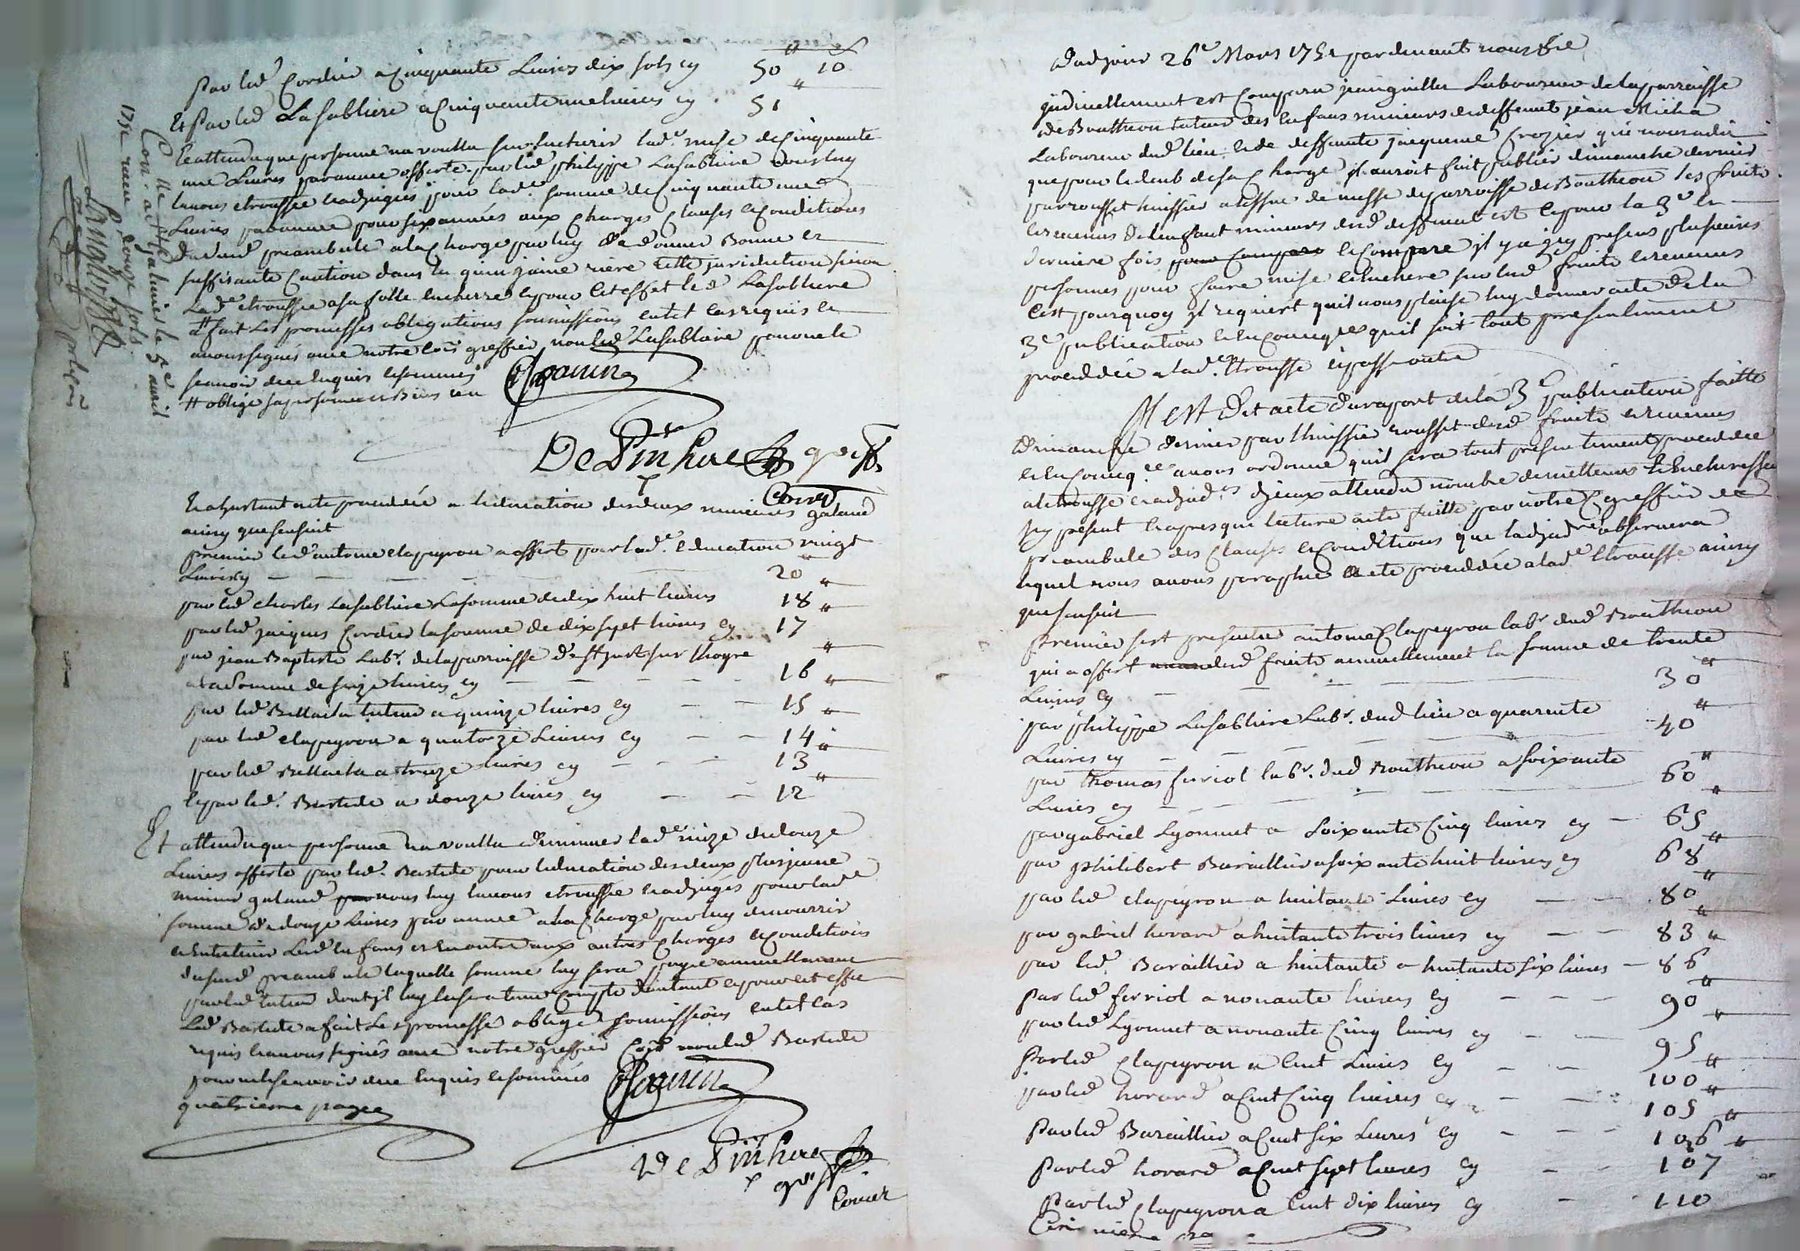 # s
par led Cordier a Cinquante Livres dix sols cy 50 10
Et par led Lasabliere a Cinquante une livres cy 51 "
Et attendu que personne na voullu surencherir lade mise de Cinquante
une Livres par année offerte par led philippe Lasabliere nous luy
lavons etroussée et adjugée pour lade somme de Cinquante une
Livres par année pour six années aux Charges Clauses et Conditions
dudit preambule a la Charge par luy de donner Bonne et
suffisante Caution dans la quinzaine riere cette jurisdiction sinon
lade etrousse a sa folle enchere et pour cet effet led Lasabliere
# fait les promesses obligations soumissions et cas requis et
avons signés avec notre greffier non led Lasabliere pour ne le
scavoir de ce enquis et sommé
# obligé sa personne et Biens
De St
greff
Et a linstant a ete procedée a leducation desdeux mineurs galand
ainsy que sensuit
premier led antoine clapeyron a offert pour lade education vingt
Livres cy — — 20 "
par led charles Lasabliere la somme de dix huit livres 18 "
par led jacques Cordier la somme de dix sept livres cy 17 "
par jean Baptiste Labr. de la parroisse de st just sur
a la somme de seize livres cy — — 16 "
par led tuteur a quinze livres cy — — 15 "
par led clapeyron a quatorze Livres cy — — 14 "
par led a treize livres cy — — 13 "
et par led. Bastide a douze livres cy — — 12 "
Et attendu que personne na voullu diminuer lade mize de douze
Livres offerte par led. Bastide pour leducation desdeux plus jeune
mineur galand nous luy lavons etroussée et adjugés pour lade
somme de douze Livres par année a la Charge par luy de nourrir
et Entretenir lesd Enfans et En outre aux autres Charges et Conditions
dususd preambule laquelle somme luy sera payée annuellement
par led tuteur dont il luy sera tenu Compte dautant et pour cet effet
Led Bastide a fait les promesse oblige soumissions et cas
requis et avons signés avec notre greffier non led Bastide
pour ne le scavoir de ce enquis et sommés
quatrieme page
De St
greff
1751 receu douze sols
le 5e avril
Dudjour 26e Mars 1751 pardevant nous
judiciellement est Comparu jean Laboureur de la parroisse
de Bouthéon tuteur des Enfans mineurs de deffunt jean
Laboureur dud lieu et de deffunte jacqueme Crozier qui nous a dit
que pour le deub de sa Charge il auroit fait publier dimanche dernier
par rousset huissier a lissue de messe de parroisse de Bouthéon les fruits
et revenus desd enfant mineurs dud deffunt et pour la 3e et
derniere fois et Comme il y a icy presens plusieurs
personnes pour faire mise et Enchere sur lesd fruits et revenus
Cest pourquoy il requiert quil nous plaise luy donner acte de la
3e publication et En Conseqce quil soit tout presentement
procedée a lade Etrousse
Il est Dit acte du raport de la 3e publication faitte
dimanche dernier par lhuissier rousset desd fruits et revenus
et En Conseqce avons ordonné quil sera tout presentement procedée
a letrousse et adjudon diceux attendu nombre de metteurs et Encherisseurs
icy present et apres que lecture a ete faitte par notre greffier du
preambule des Clauses et Conditions que ladjudre observera
lequel nous avons paraphé a ete procedée a lade Etrousse ainsy
que sensuit
premier sest presenté antoine Clapeyron labr dud Bouthéon
qui a offert desd fruits annuellement la somme de trente
Livres cy — — 30 "
par philippe Lasabliere Labr. dud lieu a quarante
Livres cy — — 40 "
par thomas ferriol labr. dud Bouthéon a soixante
Livres cy — — 60 "
par gabriel Lyonnet a soixante Cinq livres cy — 65 "
par philibert Baraillier a soixante huit livres cy 68 "
par led clapeyron a huitante Livres cy — — 80 "
par gabriel horard a huitante trois livres cy — — 83 "
par led. Baraillier a huitante a huitante six livres — 86 "
par led ferriol a nonante livres cy — — 90 "
par led Lyonnet a nonante Cinq livres cy — — 95 "
par led Clapeyron a Cent Livres cy — — 100 "
par led horard a Cent Cinq livres cy — — 105 "
par led Baraillier a Cent six Livres cy — — 106 "
par led horard a Cent sept livres cy — — 107
par led clapeyron a Cent dix livres cy — 110